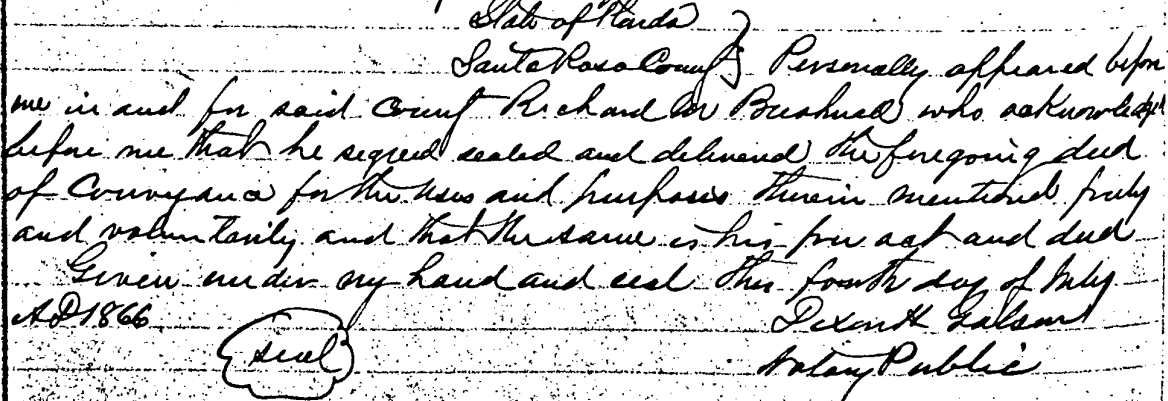 State of Florida }
Santa Rosa County } Personally appeared before
me in and for said County Richard M Bushnell who acknowledged
before me that he signed sealed and delivered the foregoing deed
of Conveyance for the uses and purposes therein mentioned freely
and voluntarily and that the same is his free act and deed
Given under my hand and seal this fourth day of July
AD 1866 Dixon H
Seal Notary Public